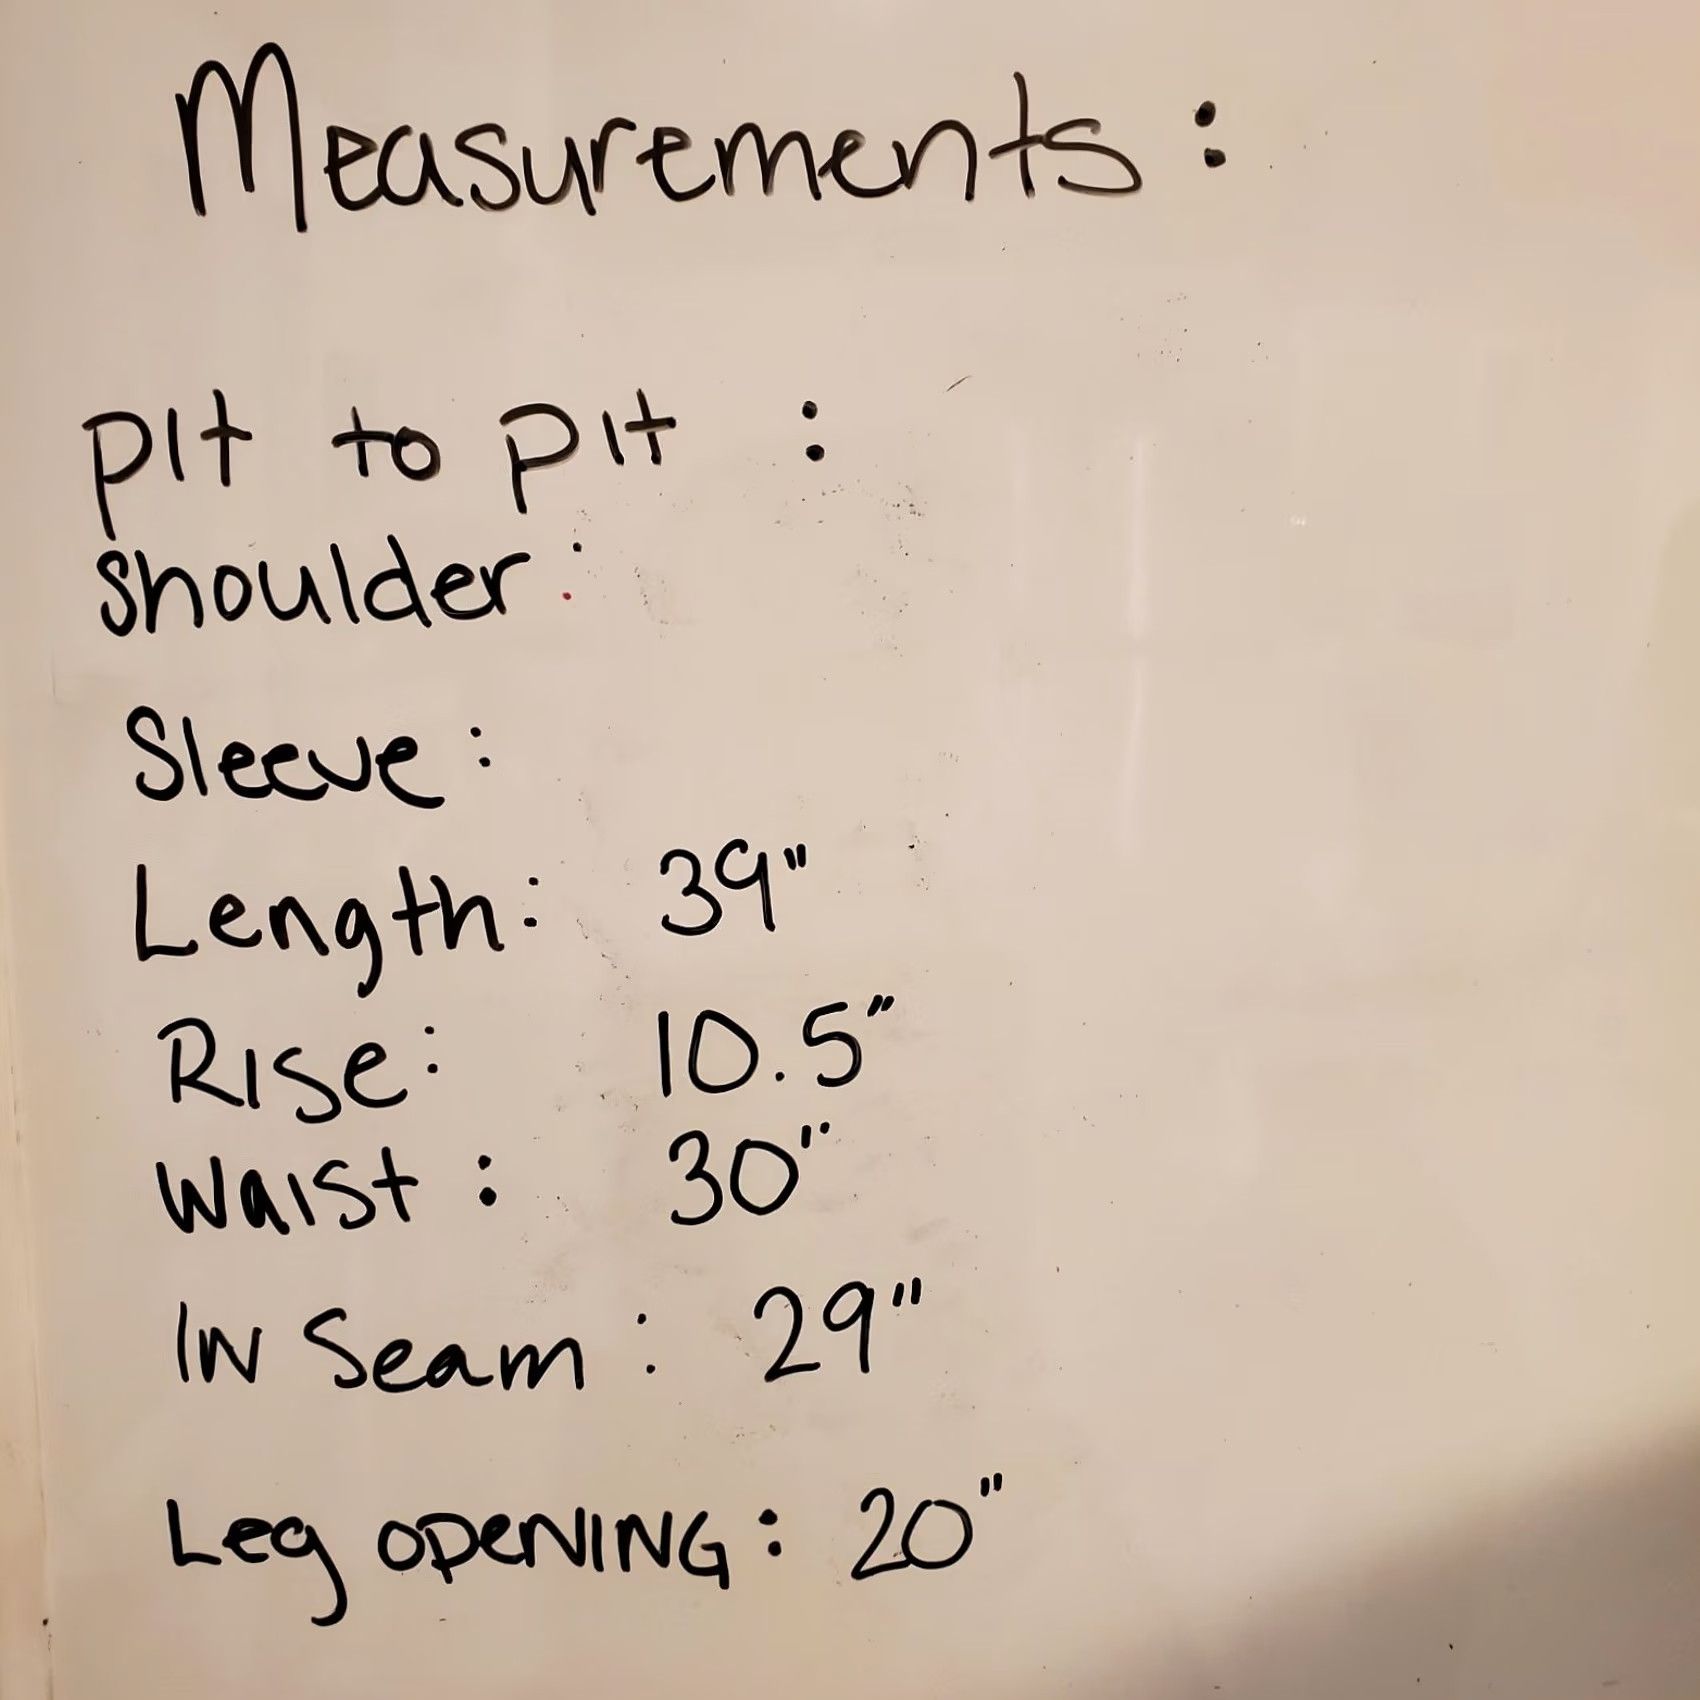 Measurements :
pit to pit :
shoulder :
Sleeve :
Length : 39"
Rise : 10.5"
Waist : 30"
In Seam : 29"
Leg OPENING : 20"